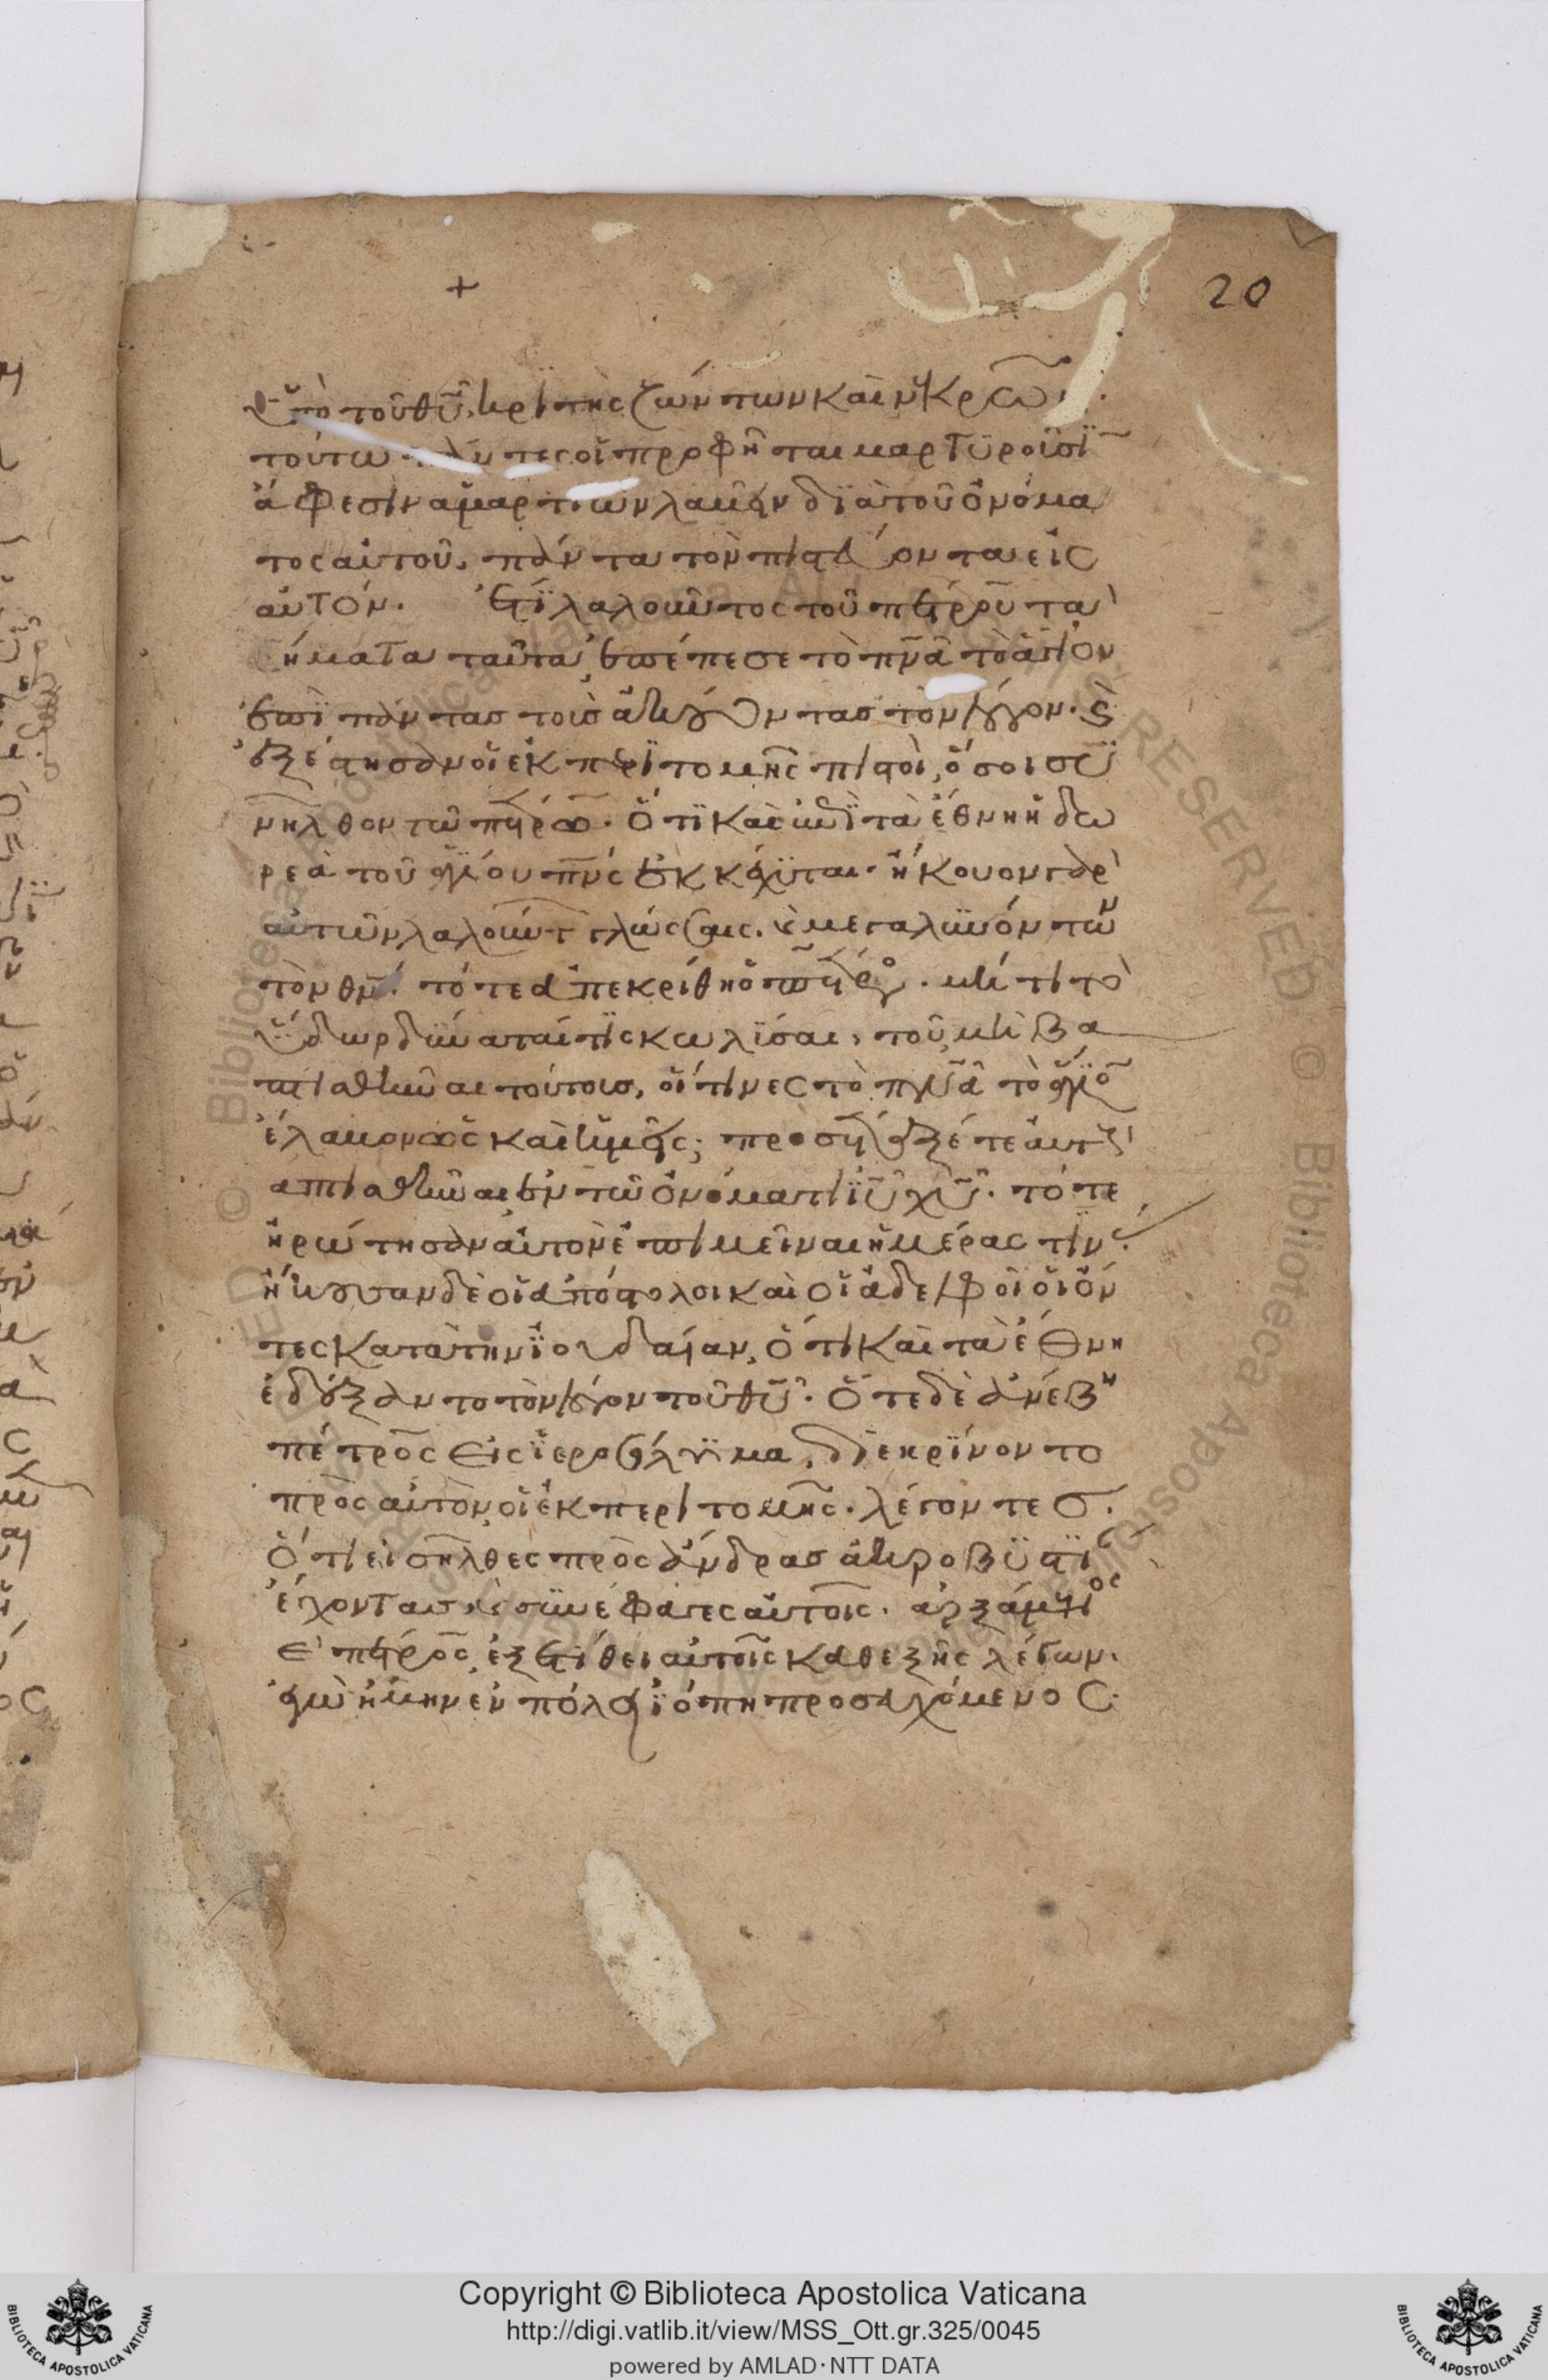 +
20
ὑπὸ τοῦ θῦ, κρϊτὴς ζώντων καὶ νεκρῶν.
τούτω πάντες οἱ προφῆται μαρτϋροῦσϊ
ἄφεσιν ἁμαρτιῶν λαβεῖν δϊὰ τοῦ ὀνόμα
τος αὐτοῦ, πάντα τὸν πιστεύοντα εἰς
αὐτόν. ἔτϊ λαλοῦντος τοῦ πέτρου τὰ
ήματα ταῦτα, ἐπέπεσε τὸ πνᾶ τὸ ἅγιον
ἐπϊ πάντασ τοὺσ ἀκούοντασ τὸν λόγον. ϗ
ἐξέστησαν οἱ ἐκ περϊτομῆς πιστοὶ, ὅσοι συ
νῆλθον τῶ πέτρω. ὅτϊ καὶ ἐπϊ τὰ ἔθνη ἡ δω
ρεὰ τοῦ ἁγίου πνς ἐκκέχϋται. ἤκουον γὰρ
αὐτῶν λαλούντ γλώσσαις. ϗ μεγαλϋνόντων
τὸν θν. τότε ἀπεκρίθη ὁ πέτρος. μήτι τὸ
ὕδωρ δύναταί τϊς κωλϊσαι, τοῦ μὴ βα
πτισθῆναι τούτουσ, οἵτινες τὸ πνᾶ τὸ ἅγιον
ἔλαβον ὡς καὶ ἡμεῖς; προσέταξέ τε αὐτοὺς
απτισθῆναι ἐν τῶ ὀνόματι ϊῦ χῦ. τότε
ἠρώτησαν αὐτὸν ἐπιμεῖναι ἡμέρας τινάς.
ἤκουσαν δὲ οἱ ἀπόστολοι καὶ οἱ ἀδελφοὶ οἱ ὄν
τες κατὰ τὴν ϊουδαίαν, ὅτι καὶ τὰ ἔθνη
ἐδέξαντο τὸν λόγον τοῦ θῦ. ὅτε δὲ ἀνέβη
πέτρος εἰς ϊεροσόλυμα, διεκρίνοντο
πρὸς αὐτὸν, οἱ ἐκ περιτομῆς. λέγοντεσ.
ὅτι εἰσῆλθες πρὸς ἄνδρασ ἀκροβϋστϊαν
ἔχοντασ, ϗ συνέφαγες αὐτοῖς. ἀρξάμενος
ε πέτρος, ἐξετίθει αὐτοῖς καθεξῆς λέγων.
ἐγὼ ἤμην ἐν πόλει ϊόππη προσευχόμενος
Copyright © Biblioteca Apostolica Vaticana
http://digi.vatlib.it/view/MSS_Ott.gr.325/0045
powered by AMLAD·NTT DATA